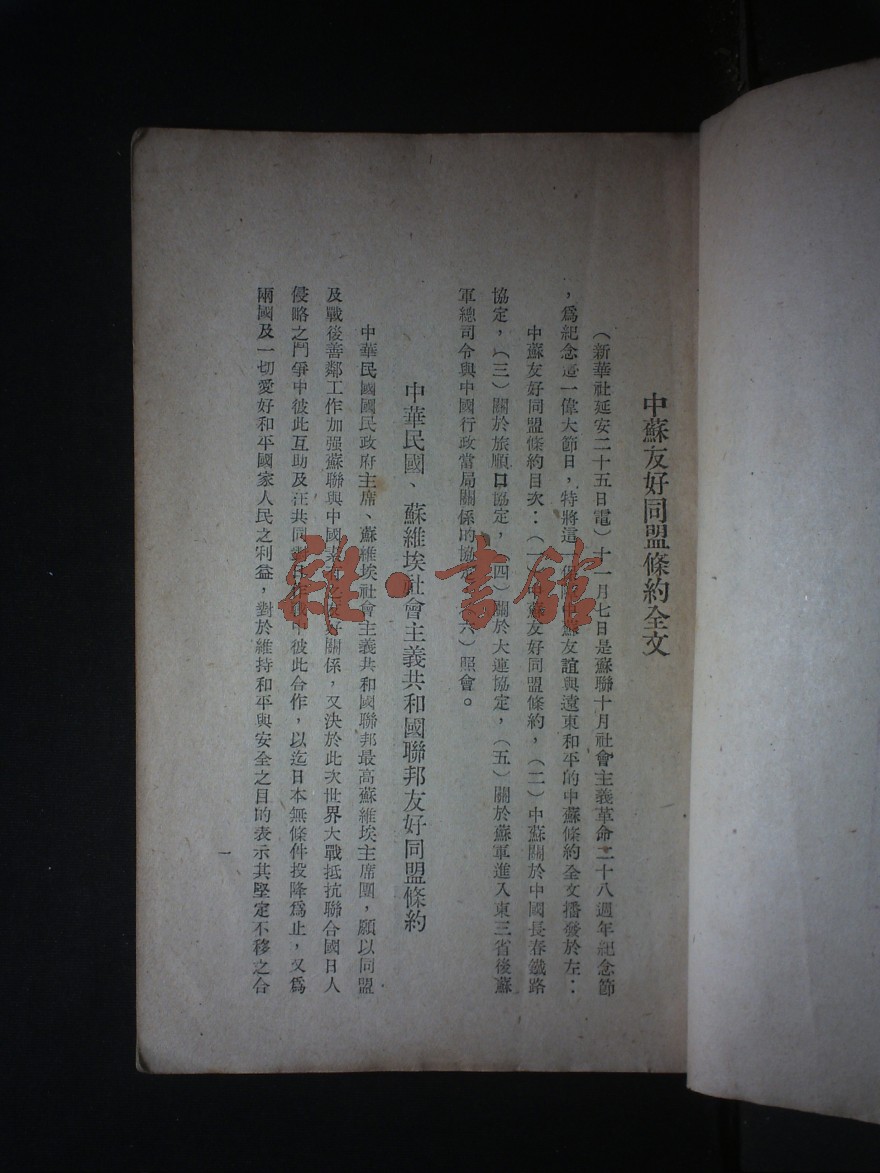 中蘇友好同盟條約全文
（新華社延安二十五日電）十一月七日是蘇聯十月社會主義革命二十八週年紀念節
，爲紀念這一偉大節日，特將這一保障中蘇友誼與遠東和平的中蘇條約全文播發於左：
中蘇友好同盟條約目次：（一）中蘇友好同盟條約，（二）中蘇關於中國長春鐵路
協定，（三）關於旅順口協定，（四）關於大連協定，（五）關於蘇軍進入東三省後蘇
軍總司令與中國行政當局關係的協定（六）照會。
中華民國、蘇維埃社會主義共和國聯邦友好同盟條約
中華民國國民政府主席、蘇維埃社會主義共和國聯邦最高蘇維埃主席團，願以同盟
及戰後善鄰工作加强蘇聯與中國素有之友好關係，又決於此次世界大戰抵抗聯合國日人
侵略之鬥爭中彼此互助及汪共同對日作戰中彼此合作，以迄日本無條件投降爲止，又爲
兩國及一切愛好和平國家人民之利益，對於維持和平與安全之目的表示其堅定不移之合
一
雜·書館